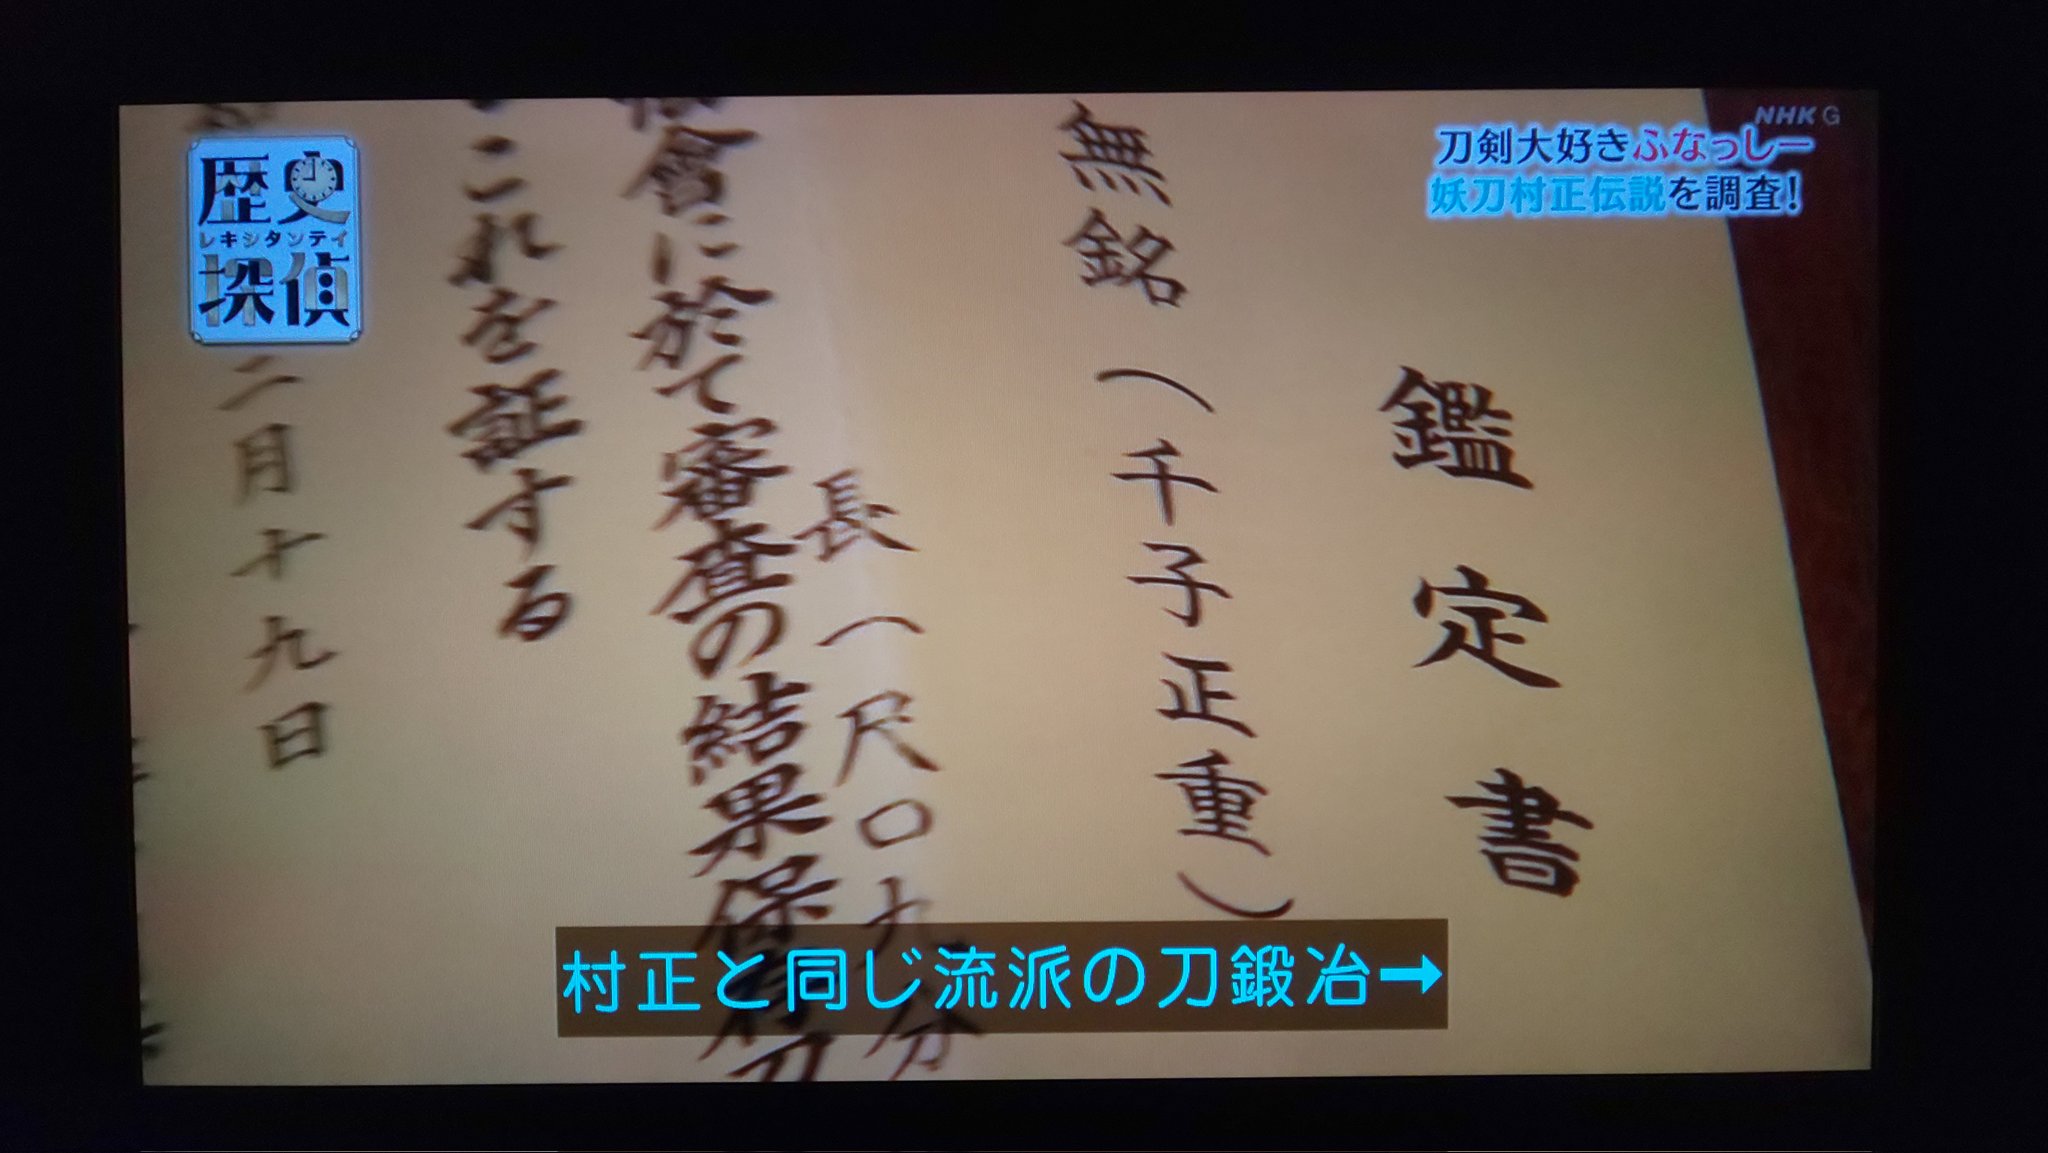 NHK G
刀剣大好きふなっしー
妖刀村正伝説を調査!
歴史
レキシタンテイ
探偵
鑑定書
無銘(千子正重)
長一尺〇九分
會に於て審査の結果保存刀
これを証する
二月十九日
村正と同じ流派の刀鍛冶→